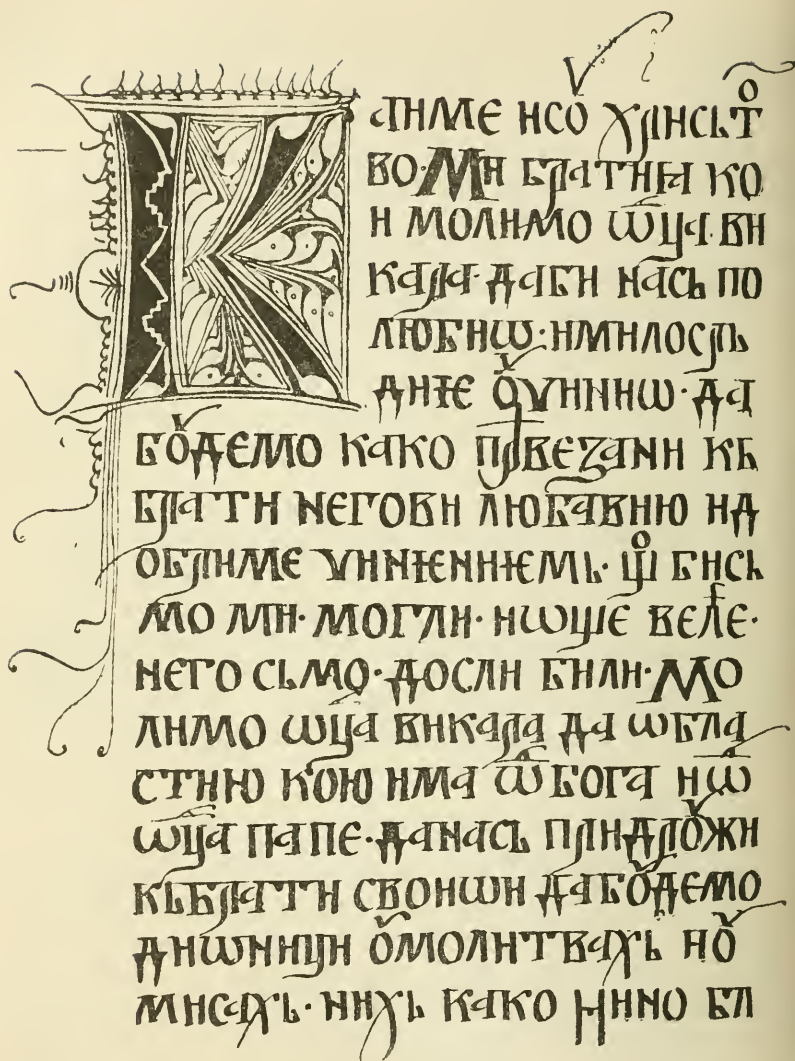 Катиме исȣ хрисьто
во· Ми братиꙗ ко
и молимо ѿца· ви
кара· даби нась по
любиѡ· имилосрь
диѥ ȣчиниѡ· да
бȣдемо како првезани кь
брати негови любавию ид
обриме чиниѥниѥмь· що бись
мо ми· могли· иѡще веле·
него сьмо· досли били· Мо
лимо ѡца викара да ѡбла
стию кою има ѿбога иѿ
ѡца папе· данась придрȣжи
кьбрати своиѡи дабȣдемо
диѡници ȣмолитвахь иȣ
мисахь· нихь како бр